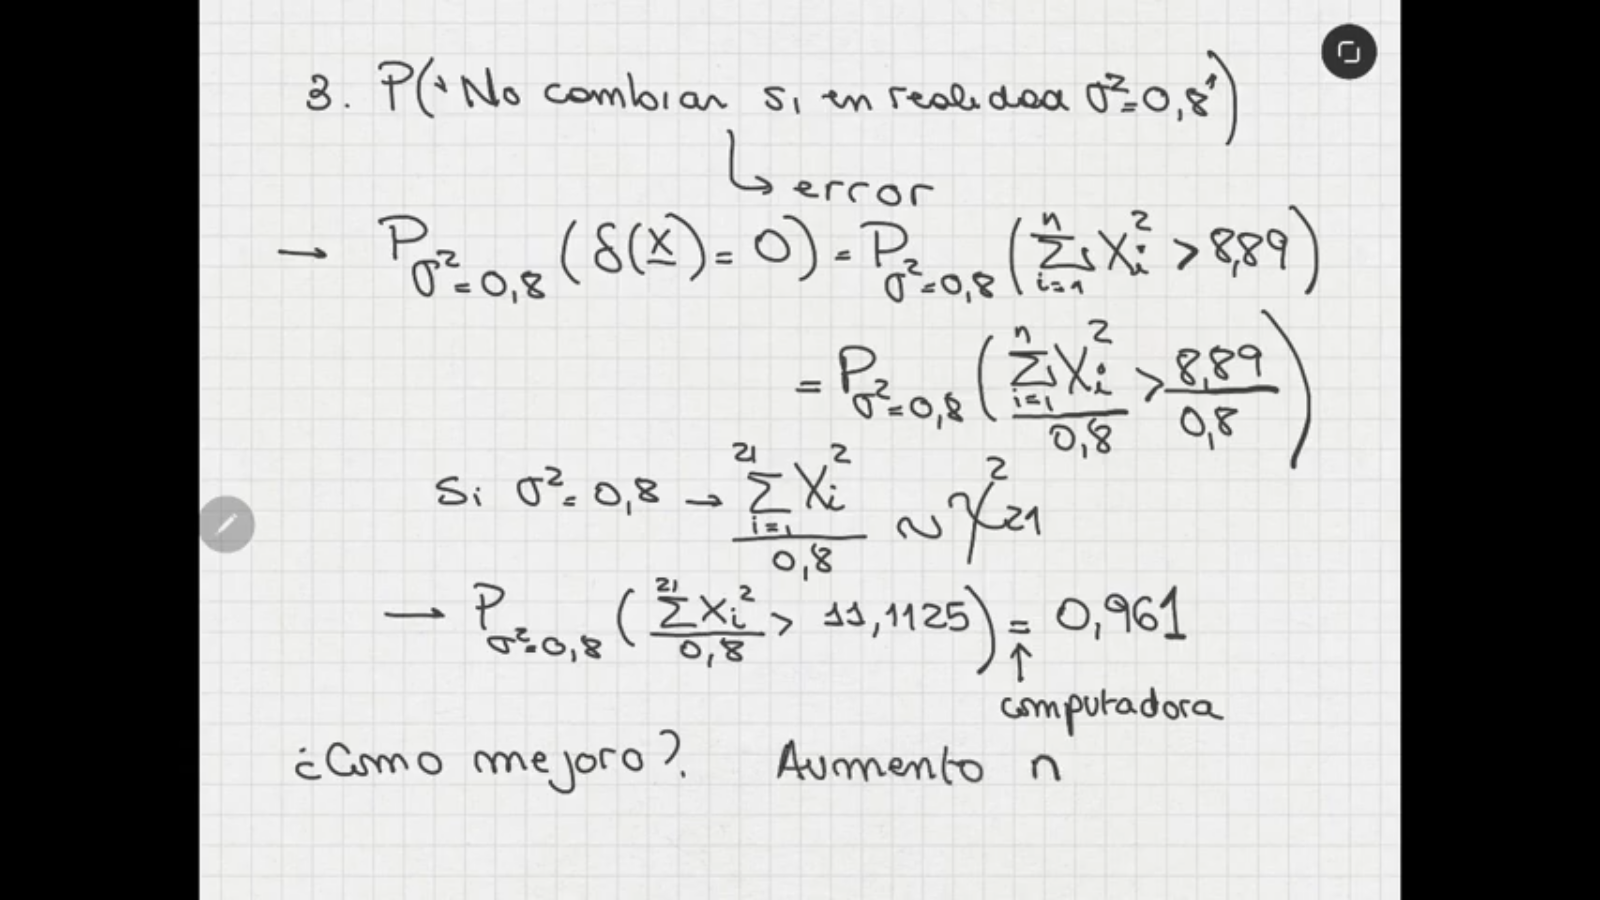 3. P("No cambiar si en realidad σ²=0,8")
↳ error
→ P_{σ²=0,8} (δ(X)=0) = P_{σ²=0,8} (∑_{i=1}^{n} Xi² > 8,89)
= P_{σ²=0,8} (∑_{i=1}^{n} Xi² / 0,8 > 8,89 / 0,8)
Si σ²=0,8 → ∑_{i=1}^{21} Xi² / 0,8 ~ χ²_{21}
→ P_{σ²=0,8} (∑^{21} Xi² / 0,8 > 11,1125) = 0,961
↑
computadora
¿Como mejoro? Aumento n